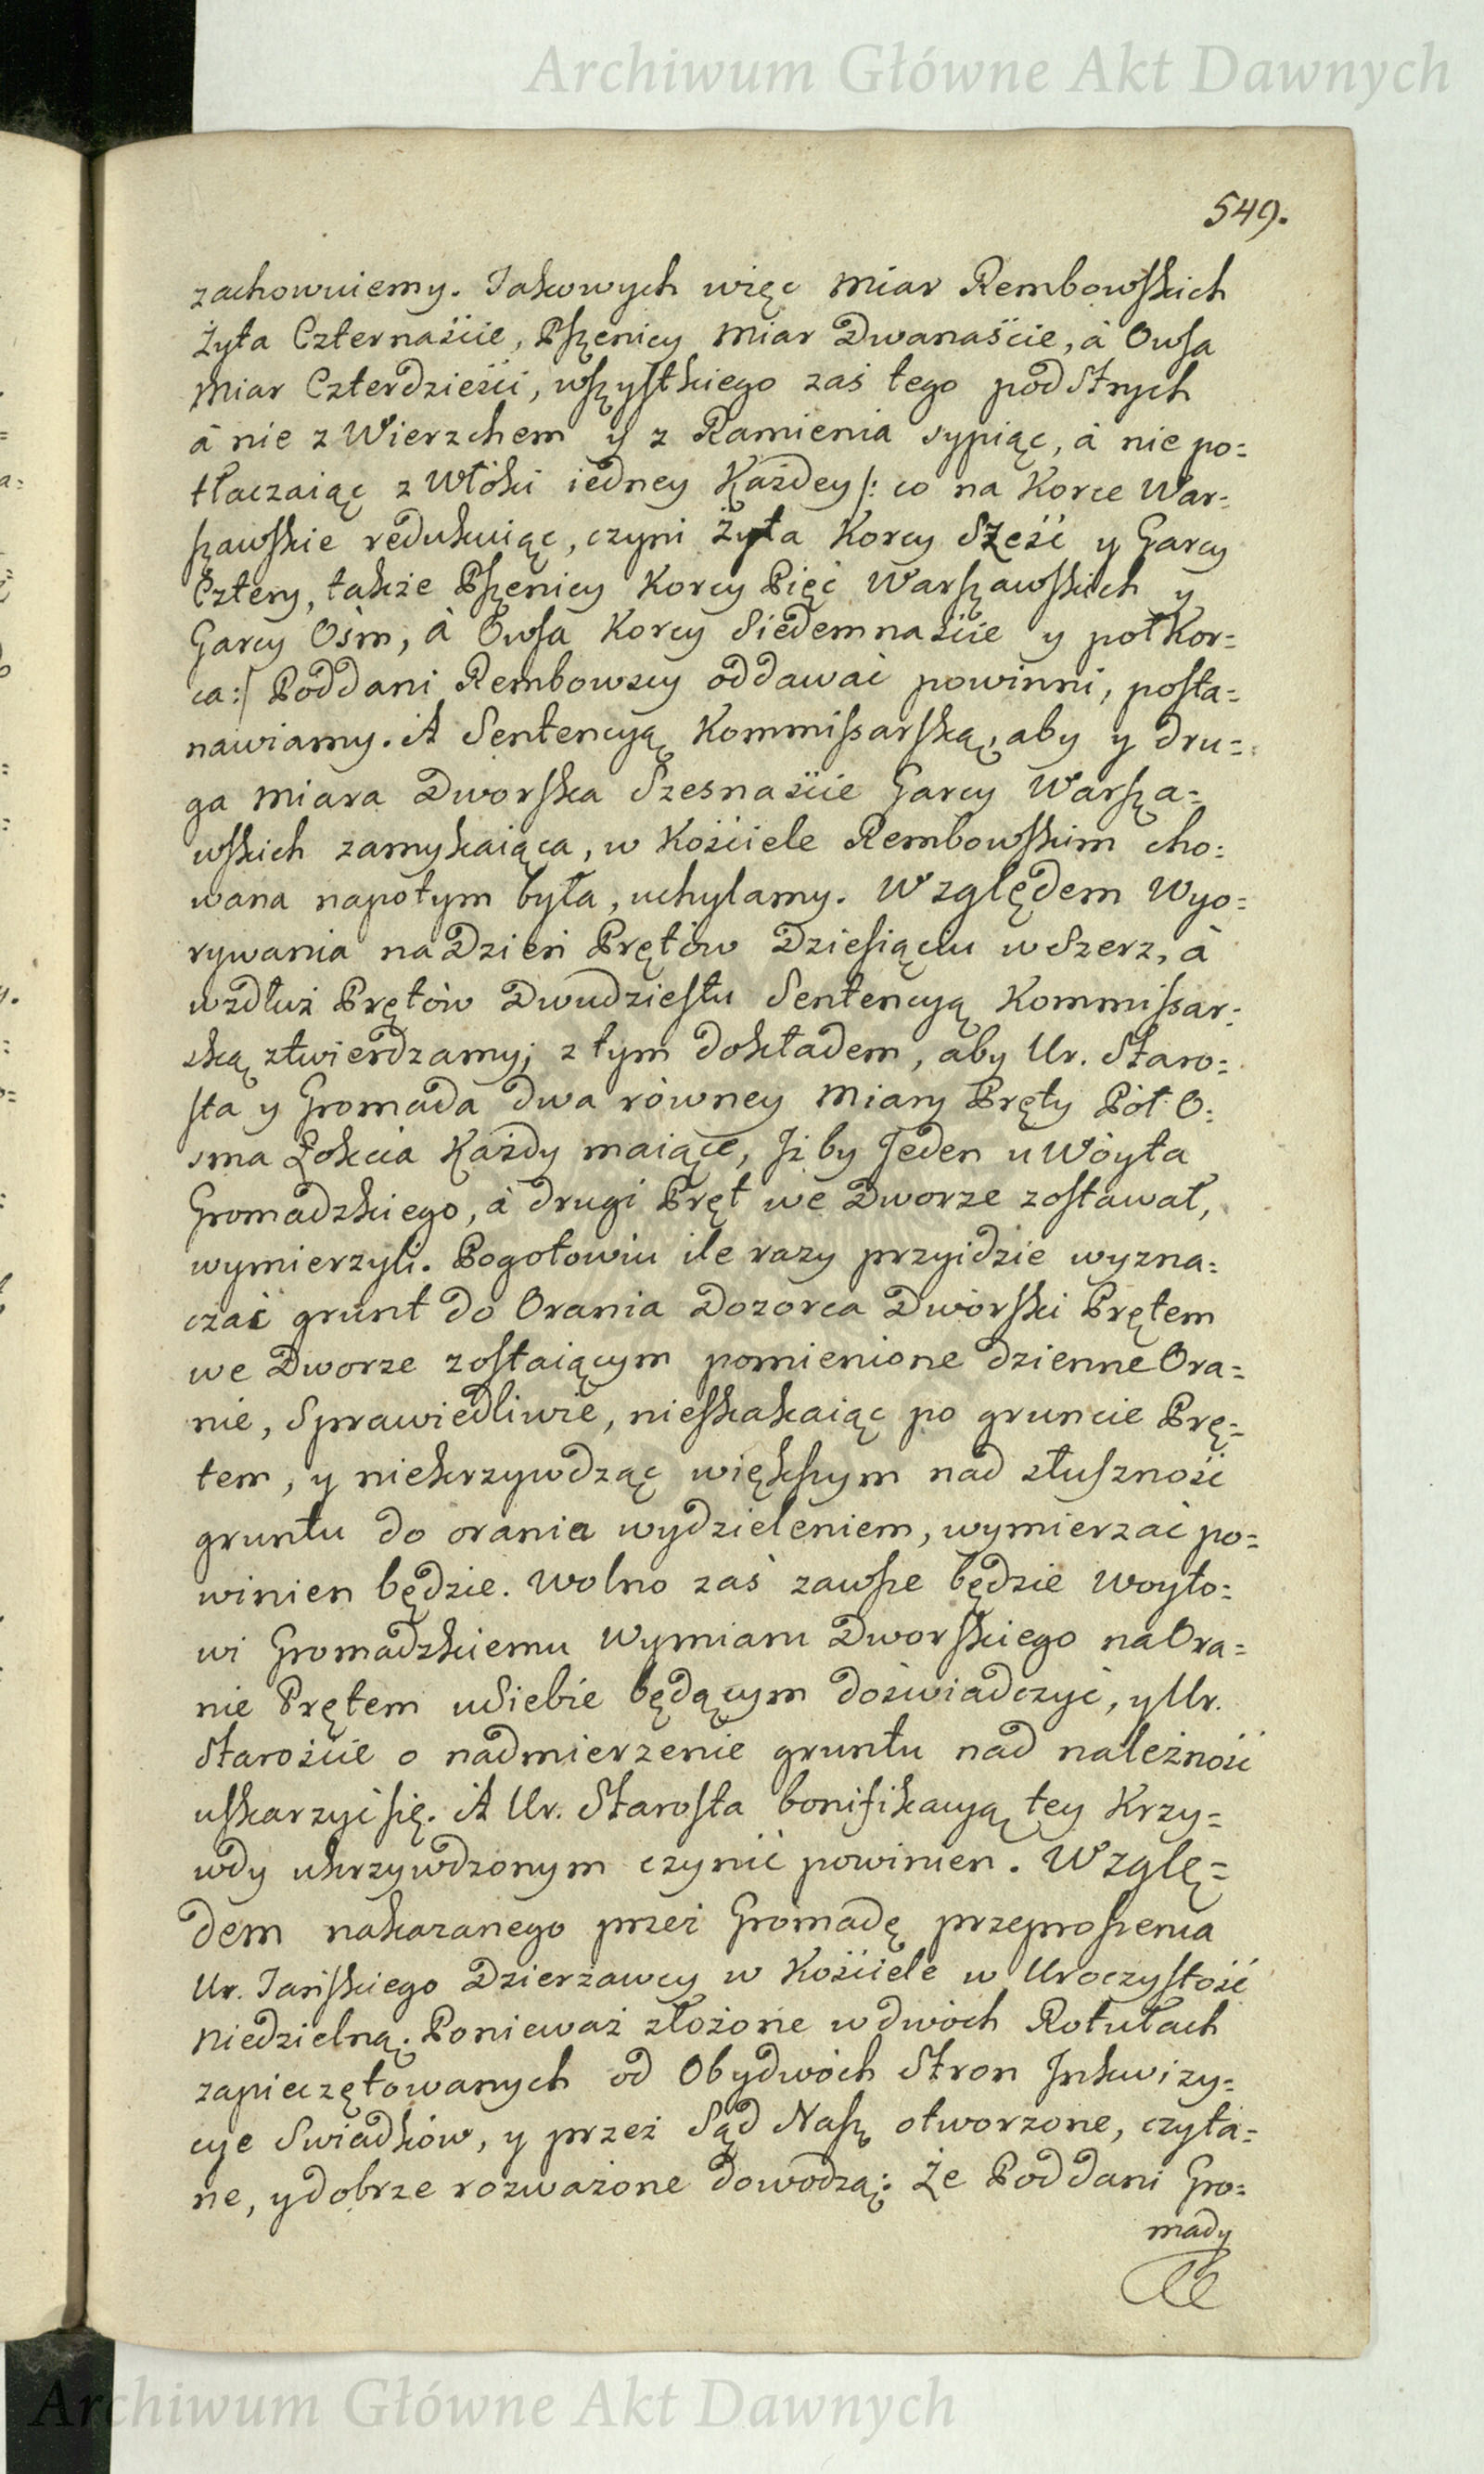 Archiwum Główne Akt Dawnych
549.
zachowuiemy. Jakowych więc Miar Rembowskich
Żyta Czternaście, Pszenicy Miar Dwanaście, à Owsa
Miar Czterdzieści, wszystkiego zaś tego pod Strych
à nie z Wierzchem y z Ramienia sypiąc, à nie po=
tłaczaiąc z Włóki iedney Każdey /: co na Korce War=
szawskie redukuiąc, czyni Żyta Korcy Sześć y Garcy
Cztery, także Pszenicy Korcy Pięć Warszawskich y
Garcy Ośm, à Owsa Korcy Siedemnaście y poł Kor=
ca :/ Poddani Rembowscy oddawać powinni, posta=
nawiamy. A Sentencyą Kommissarską, aby y dru=
ga Miara Dworska Szesnaście Garcy Warsza=
wskich zamykaiąca, w Kościele Rembowskim cho=
wana napotym była, uchylamy. Względem Wyo=
rywania na Dzień Prętów Dziesiąciu w Szerz, à
wzdłuż Prętów Dwudziestu Sentencyą Kommissar=
ską ztwierdzamy; z tym dokładem, aby Ur. Staro=
sta y Gromada dwa równey Miary Pręty Pół O=
sma Łokcia Każdy maiące, Jż by Jeden u Wóyta
Gromadzkiego, à drugi Pręt we Dworze zostawał,
wymierzyli. Pogotowiu ile razy przyidzie wyzna=
czać grunt do Orania Dozorca Dworski Prętem
we Dworze zostaiącym pomienione dzienne Ora=
nie, Sprawiedliwie, nieskakaiąc po gruncie Prę=
tem, y niekrzywdząc większym nad złuszność
gruntu do orania wydzieleniem, wymierzać po=
winien będzie. Wolno zaś zawsze będzie Woyto=
wi Gromadzkiemu Wymiaru Dworskiego na Ora=
nie Prętem u Siebie będącym doświadczyć, y Ur.
Staroście o nadmierzenie gruntu nad należność
uskarzyć się. A Ur. Starosta bonifikacyą tey Krzy=
wdy ukrzywdzonym czynić powinien. Wzglę=
dem nakazanego przez Gromadę przeproszenia
Ur. Jasińskiego Dzierżawcy w Kościele w Uroczystość
Niedzielną; Ponieważ złożone w dwóch Rotułach
zapieczętowanych od Obydwóch Stron Jnkwizy=
cye Swiadków, y przez Sąd Nasz otworzone, czyta=
ne, y dobrze rozważone dowodzą; Że Poddani Gro=
mady
Archiwum Główne Akt Dawnych